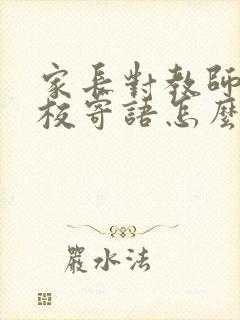 家長對教師
校寄語怎麼
嚴水法